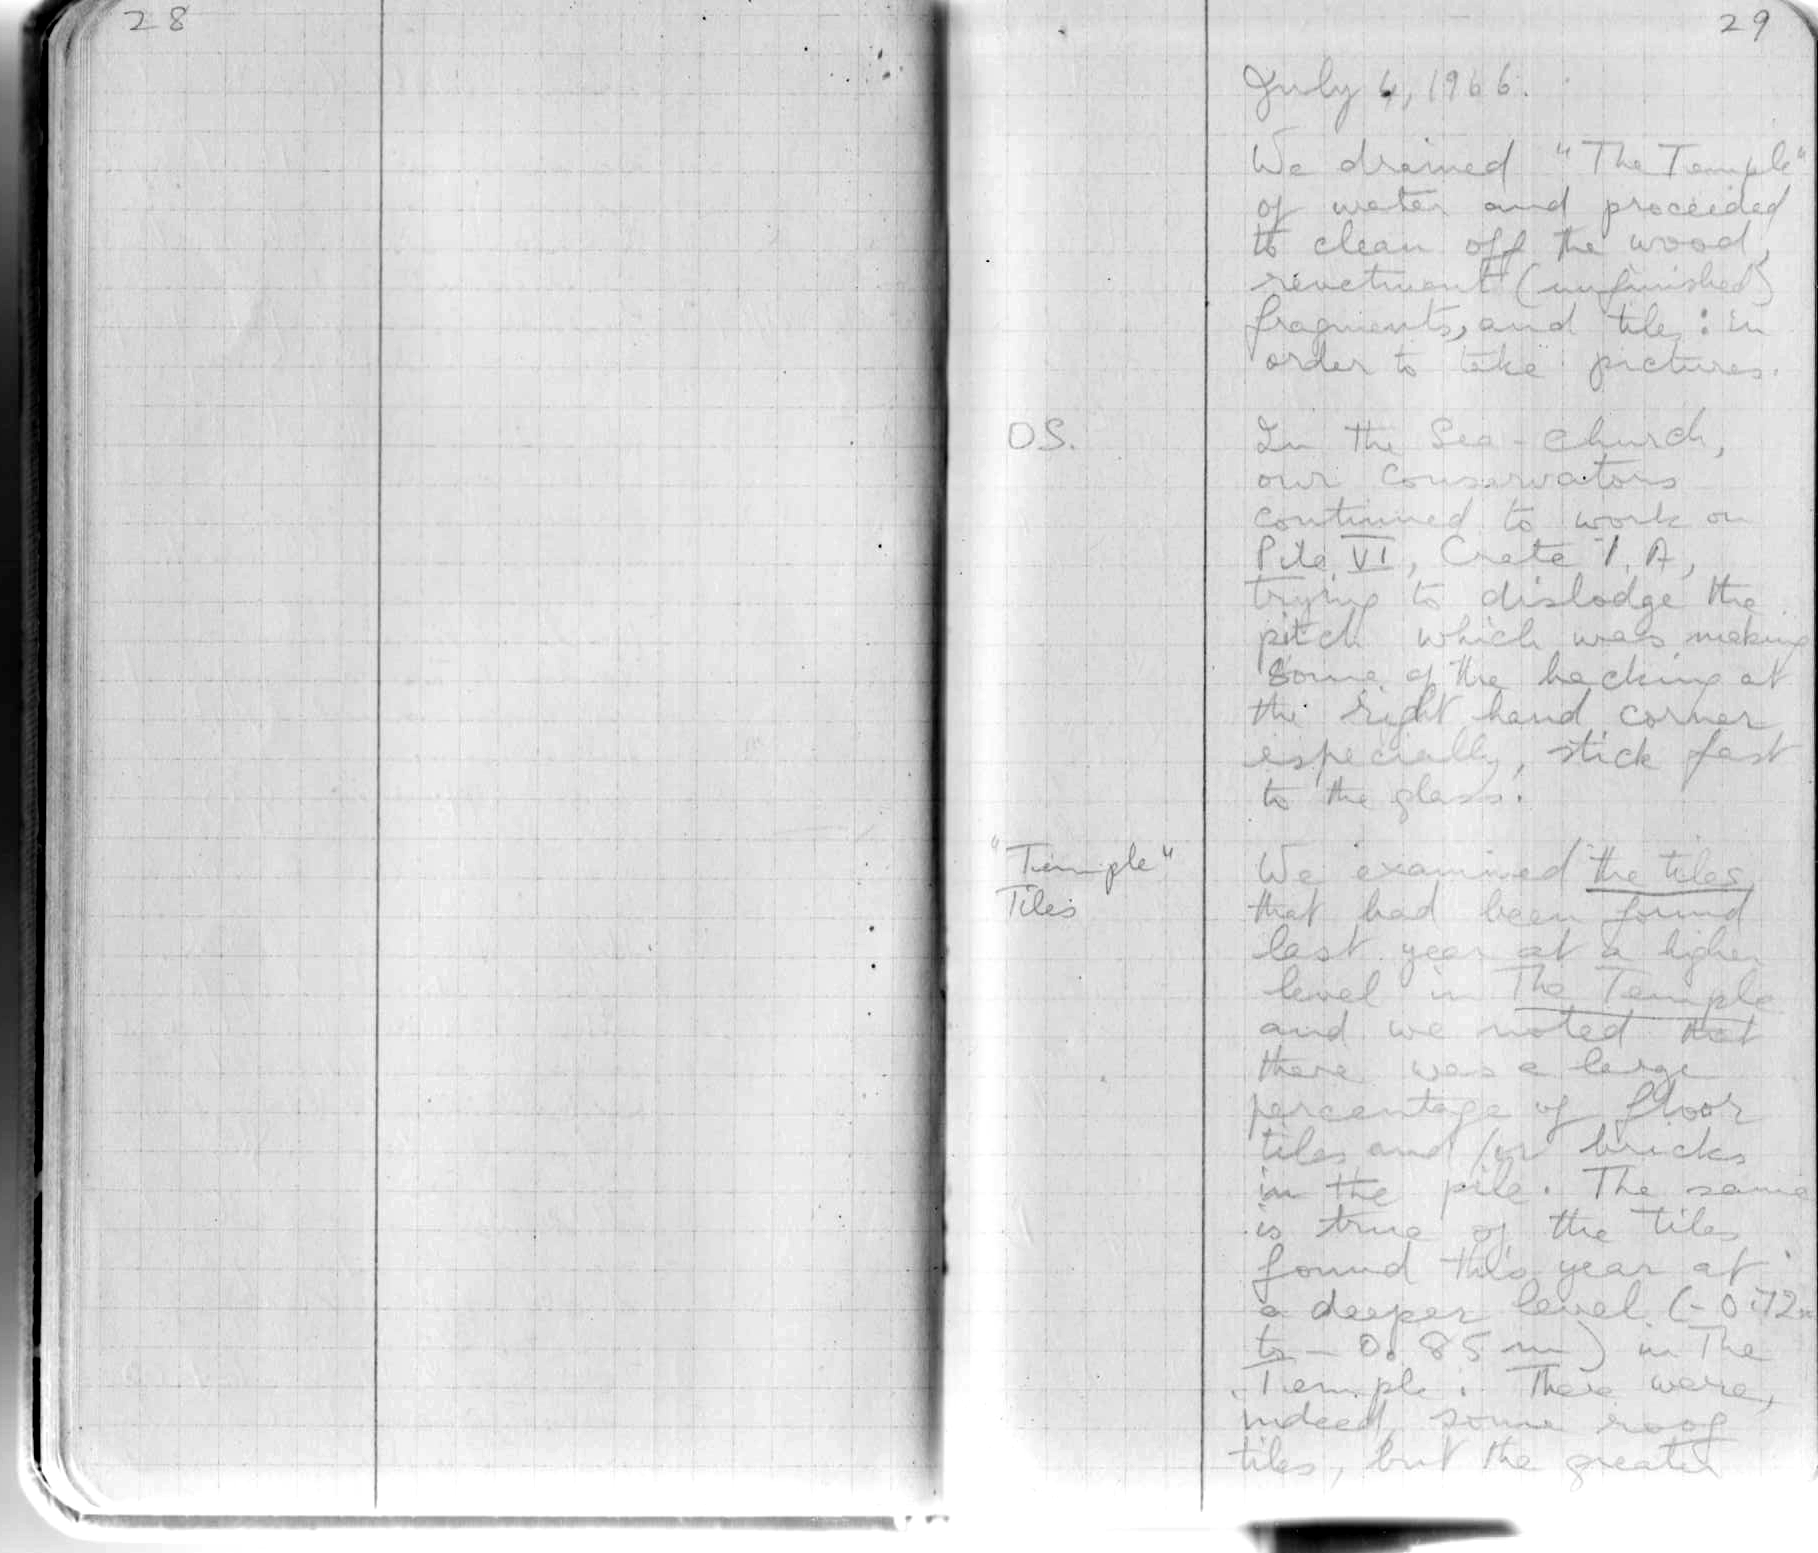 28
29
July 6, 1966.
We drained "The Temple"
of water and proceeded
to clean off the wood,
revetment (unfinished)
fragments, and tiles: in
order to take pictures.
OS.
In the Sea-church,
our Conservators
continued to work on
Pile VI, Crate 1. A,
trying to dislodge the
pitch which was making
some of the backing at
the right hand corner
especially, stick fast
to the glass.
"Temple"
Tiles
We examined the tiles
that had been found
last year at a higher
level in The Temple
and we noted that
there was a large
percentage of floor
tiles and/or bricks
in the pile. The same
is true of the tiles
found this year at
a deeper level (-0.72m
to -0.85m) in The
Temple. There were,
indeed, some roof
tiles, but the greater